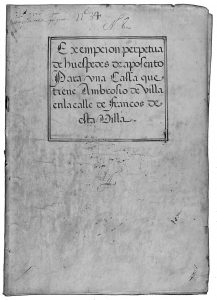 Exempcion perpetua
de huespedes de aposento
Para vna Cassa que
tiene Ambrosio de Villa
en la calle de Francos de
esta Villa